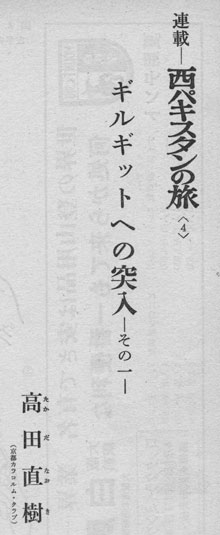 連載―西パキスタンの旅〈4〉
ギルギットへの突入―その一―
高田直樹
たかだなおき
（京都カラコルム・クラブ）